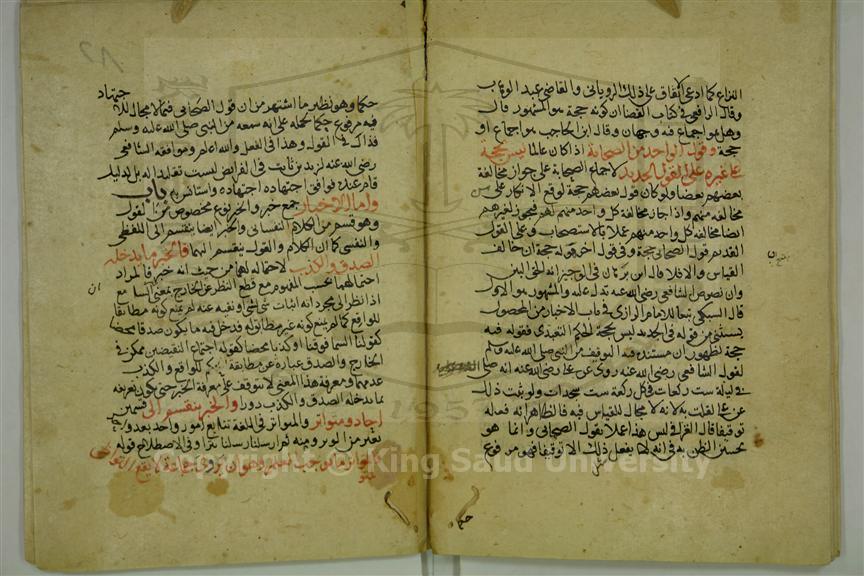 النزاع كما ادعى الاتفاق على ذلك الروياني والقاضي عبد الوهاب
وقال الرافعي في كتاب القضا ان كونه حجة هو المشهور قال
وهل هو اجماع فيه وجهان وقال ابن الحاجب هو اجماع او
حجة وقول الواحد من الصحابة اذا كان عالما ليس بحجة
على غيره على القول الجديد لاجماع الصحابة على جواز مخالفة
بعضهم بعضا ولو كان قول بعضهم حجة لوقع الانكار على من
خالفه منهم واذا جاز مخالفة كل واحد منهم لهم فيجوز لغيرهم
ايضا مخالفة كل واحد منهم عملا بالاستصحاب وعلى القول
القديم قول الصحابي حجة وفي قول اخر قوله حجة ان خالف
القياس والا فلا قال ابن برهان في الوجيز انه الحق المبين
وان نصوص الشافعي رضي الله عنه تدل عليه والمشهور الاول
قال السبكي تبعا للامام الرازي في باب الاخبار من المحصول
يستثنى من قوله في الجديد ليس بحجة الحكم التعبدي فقوله فيه
حجة لظهور ان مستنده فيه التوقيف من النبي صلى الله عليه وسلم
لقول الشافعي رضي الله عنه روي عن علي رضي الله عنه انه صلى
في ليلة ست ركعات في كل ركعة ست سجدات ولو ثبت ذلك
عن علي لقلت به لانه لا مجال للقياس فيه فالظاهر انه فعله
توقيفا قال الغزالي ليس هذا عملا بقول الصحابي وانما هو
تحسين الظن به في انه لا يفعل ذلك الا توقيفا فهو مرفوع
حكما
حكما وهو نظير ما اشتهر من ان قول الصحابي فيما لا مجال للاجتهاد
فيه مرفوع حكما لحمله على انه سمعه من النبي صلى الله عليه وسلم
فذاك في القول وهذا في الفعل والله اعلم وموافقة الشافعي
رضي الله عنه لزيد بن ثابت في الفرايض ليست تقليدا له بل لدليل
قام عنده فوافق اجتهاده اجتهاده واستانس به باب
واما الاخبار جمع خبر والخبر نوع مخصوص من القول
وهو قسم من الكلام النفساني والخبر ايضا ينقسم الى اللفظي
والنفسي كما ان الكلام والقول ينقسم اليهما فالخبر ما يدخله
الصدق والكذب لاحتماله لهما من حيث انه خبر فالمراد
احتمالهما بحسب المفهوم مع قطع النظر عن الخارج بمعنى السامع
اذا نظر الى مجرد انه اثبات شي لشي او نفيه عنه لم يمنع كونه مطابقا
للواقع كما لم يمنع كونه غير مطابق له فدخل فيه ما يكون صدقا محضا
كقولنا السما فوقنا او كذبا محضا كقوله اجتماع النقيضين ممكن في
الخارج والصدق عبارة عن مطابقة الحكم للواقع والكذب
عدمها ومعرفة هذا المعنى لا تتوقف على معرفة الخبر حتى يكون تعريفه
بما يدخله الصدق والكذب دورا والخبر ينقسم الى قسمين
احاد ومتواتر والمتواتر في اللغة تتابع امور واحد بعد واحد
بفترة من الوتر ومنه ثم ارسلنا رسلنا تترا وفي الاصطلاح قوله
فالمتواتر ما يوجب العلم وهو ان يروي جماعة لا يقع التواطي
Copyright © King Saud University
1957